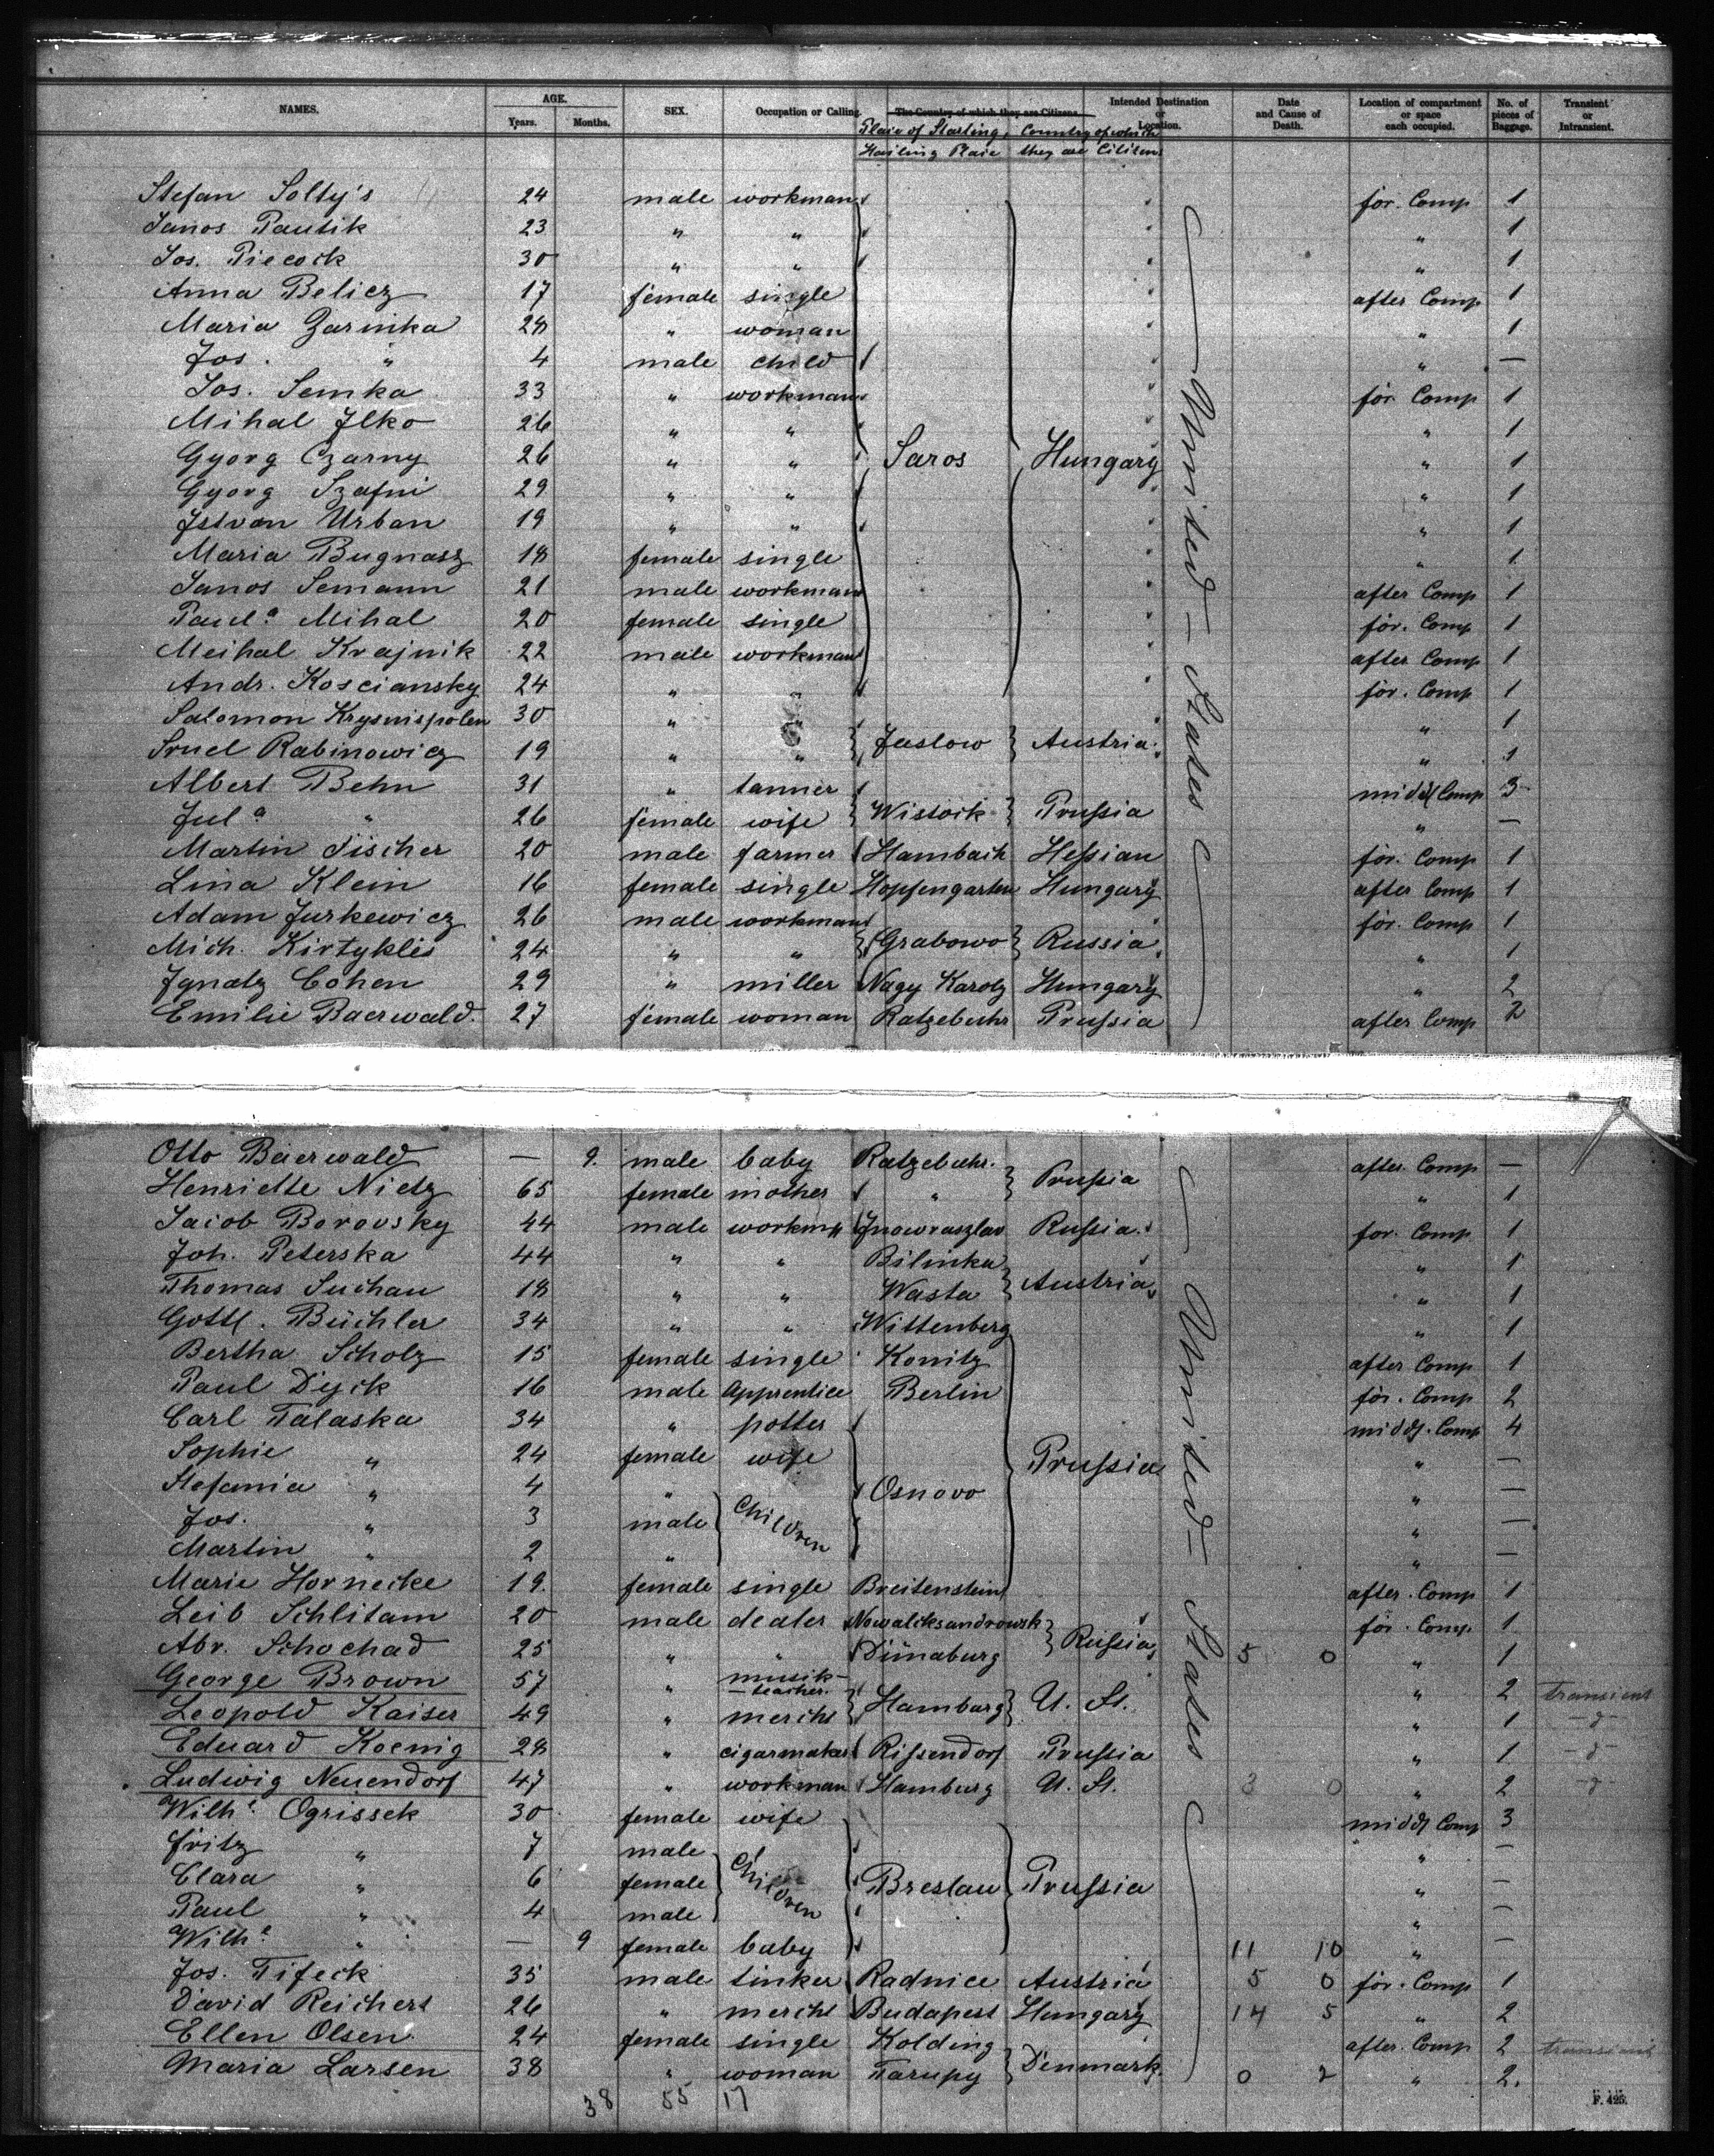 NAMES. AGE. Years. Months. SEX. Occupation or Calling. The Country of which they are Citizens. Intended Destination or Location. Date and Cause of Death. Location of compartment or space each occupied. No. of pieces of Baggage. Transient or Intransient.
Place of Starting, Hailing Place Country of which they are Citizens
Stefan Solty's 24 male workman för. Comp 1
Janos Pautik 23 " " " 1
Jos. Piecock 30 " " " 1
Anna Belicz 17 female single after Comp 1
Maria Zarinka 28 " woman " 1
Jos. " 4 male child " —
Jos. Semka 33 " workman för. Comp 1
Mihal Ilko 26 " " " 1
Gyorg Czarny 26 " " Saros Hungary " 1
Gyorg Szafni 29 " " " 1
Istvan Urban 19 " " " 1
Maria Bugnasz 18 female single " 1
Janos Semann 21 male workman after Comp 1
Paula Mihal 20 female single för. Comp 1
Meihal Krajnik 22 male workman after Comp 1
Andr. Kosciansky 24 " " för. Comp 1
Salomon Krysnispolen 30 " " " 1
Sruel Rabinowicz 19 " " Jaslow Austria " 1
Albert Behn 31 " tanner middl Comp 3
Jula " 26 female wife Wistock Prussia " —
Martin Fischer 20 male farmer Hambach Hessian för. Comp 1
Lina Klein 16 female single Hopfengarten Hungary after Comp 1
Adam Jurkewicz 26 male workman för. Comp 1
Mich. Kirtyklis 24 " " Grabowo Russia " 1
Ignatz Cohen 29 " miller Nagy Karoly Hungary " 2
Emilie Baerwald. 27 female woman Ratzebuhr Prussia after Comp 2
United States
Otto Baerwald — 9. male baby Ratzebuhr. Prussia after Comp —
Henriette Nietz 65 female mother " " 1
Jacob Borovsky 44 male workmn Inowraszlav Russia för. Comp 1
Joh. Peterska 44 " " Bilinka " 1
Thomas Suchan 18 " " Wasta Austria " 1
Gottl. Büchler 34 " " Wittenberg " 1
Bertha Scholz 15 female single Konitz after Comp 1
Paul Dyck 16 male Apprentice Berlin för. Comp 2
Carl Talaska 34 " potter middl. Comp 4
Sophie " 24 female wife Prussia " —
Stefania " 4 " Osnovo " —
Jos. " 3 male Children " —
Martin " 2 " " —
Marie Hornecke 19. female single Breitenstein after Comp 1
Leib Schlitam 20 male dealer Nowaleksandrowsk för. Comp 1
Abr. Schochad 25 " " Dünaburg Russia 5 0 " 1
George Brown 57 " musik-teacher. " 2 transient
Leopold Kaiser 49 " mercht Hamburg U. St. " 1 -d-
Eduard Koenig 28 " cigarmaker Rissendorf Prussia " 1 -d-
Ludwig Neuendorf 47 " workman Hamburg U. St. 3 0 " 2 -d
Wilhe. Ogrissek 30 female wife middl Comp 3
Fritz " 7 male " —
Clara " 6 female Children Breslau Prussia " —
Paul " 4 male " —
Wilhe. " — 9 female baby 11 10 " —
Jos. Tifeck 35 male tinker Radnice Austria 5 0 för. Comp 1
David Reichert 26 " mercht Budapest Hungary 14 5 " 2
Ellen Olsen 24 female single Kolding after Comp 2 transient
Maria Larsen 38 " woman Tarupy Denmark. 0 2 " 2.
United States
38 55 17
F. 425.